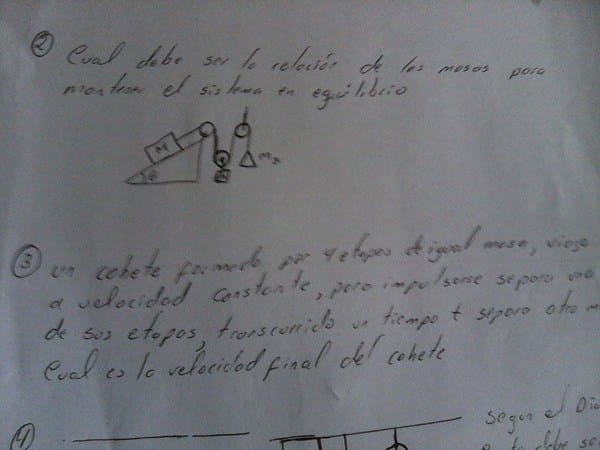 2 Cual debe ser la relación de las masas para
mantener el sistema en equilibrio
M
M₂
3 un cohete formado por 4 etapas de igual masa, viaja
a velocidad constante, para impulsarse separa una
de sus etapas, transcurrido un tiempo t separa otra
Cual es la velocidad final del cohete
4
segun el
debe